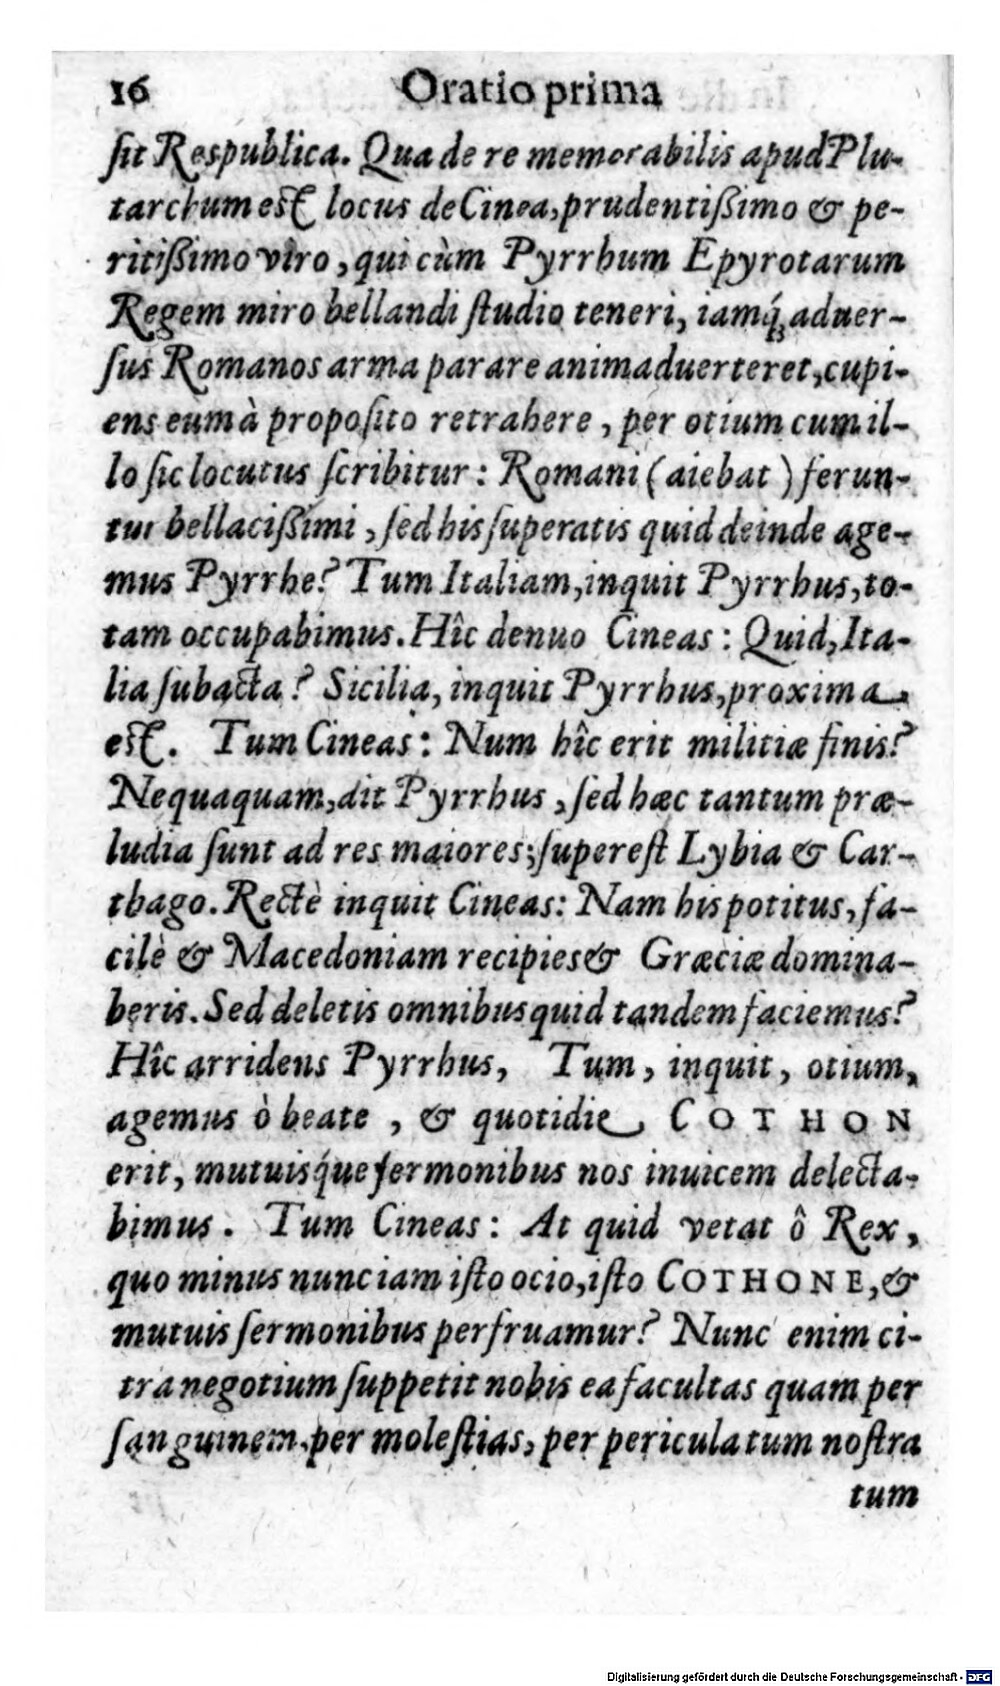 16 Oratio prima
ſit Respublica. Qua de re memorabilis apud Plu-
tarchum est locus de Cinea, prudentiſsimo & pe-
ritiſsimo viro, qui cùm Pyrrhum Epyrotarum
Regem miro bellandi ſtudio teneri, iamq́ꝫ aduer-
ſus Romanos arma parare animaduerteret, cupi-
ens eum à propoſito retrahere, per otium cum il-
lo ſic locutus ſcribitur: Romani (aiebat) ferun-
tur bellaciſsimi, ſed his ſuperatis quid deinde age-
mus Pyrrhe? Tum Italiam, inquit Pyrrhus, to-
tam occupabimus. Hîc denuo Cineas: Quid, Ita-
lia ſubacta? Sicilia, inquit Pyrrhus, proxima
est. Tum Cineas: Num hîc erit militiæ finis?
Nequaquam, dit Pyrrhus, ſed hæc tantum præ-
ludia ſunt ad res maiores; ſupereſt Lybia & Car-
thago. Rectè inquit Cineas: Nam his potitus, fa-
cilè & Macedoniam recipies & Græciæ domina-
beris. Sed deletis omnibus quid tandem faciemus?
Hîc arridens Pyrrhus, Tum, inquit, otium,
agemus ò beate, & quotidie COTHON
erit, mutuisq́ue ſermonibus nos inuicem delecta-
bimus. Tum Cineas: At quid vetat ô Rex,
quo minus nunc iam iſto ocio, iſto COTHONE, &
mutuis ſermonibus perfruamur? Nunc enim ci-
tra negotium ſuppetit nobis ea facultas quam per
ſanguinem, per moleſtias, per pericula tum noſtra
tum
Digitalisierung gefördert durch die Deutsche Forschungsgemeinschaft - DFG